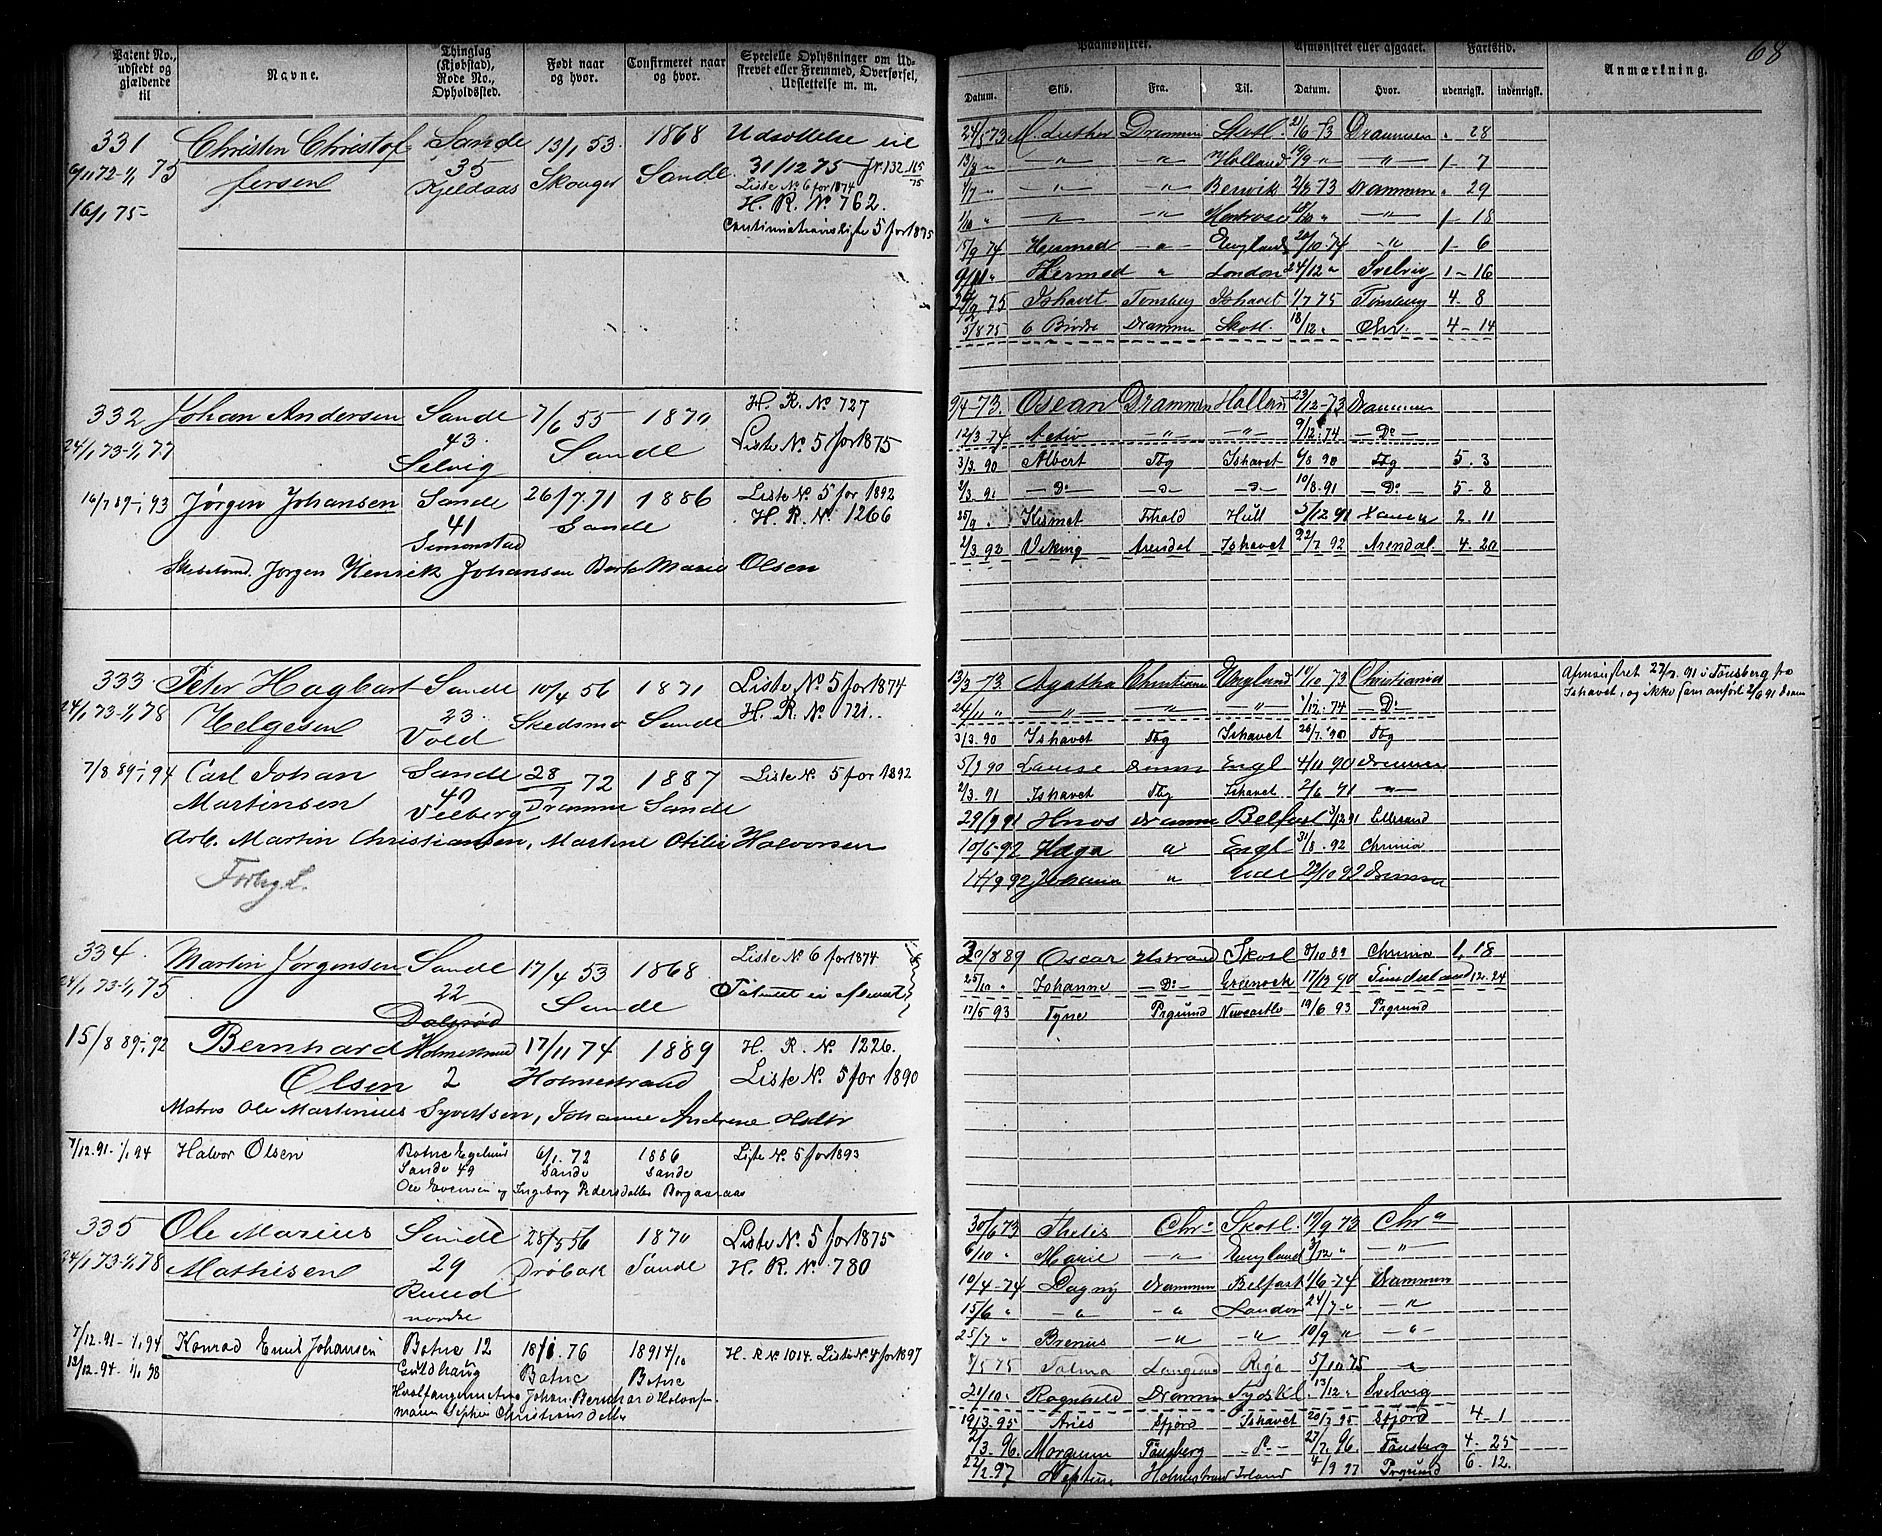 68
Patent No., udstedt og gjældende til
Navne.
Thinglag (Kjøbstad), Rode No., Opholdssted.
Født naar og hvor.
Confirmeret naar og hvor.
Specielle Oplysninger om Udskrevet eller Fremmed, Overførsel, Udslettelse m. m.
331 Christen Christof- Sande 13/1 53. 1868 Udsættelse til
9/11 72-1/1 75 fersen 35 Skouger Sande. 31/12 75
Kjeldaas Liste No 6 for 1874
16/1 75- H. R. No 762.
Continuationsliste 5 for 1875
332 Johan Andersen Sande 7/6 55 1870 H. R. No 727
24/1 73-1/1 77 43. Sande Liste No. 5 for 1875
Selvig
16/7 89-1/1 93 Jørgen Johansen Sande 26/7.71 1886 Liste No. 5 for 1892
41 Sande H. R. No. 1266
Simonstad
Jørgen Henrik Johansen Berte Marie Olsen
333. Peter Hagbart Sande 10/4 56 1871 Liste No 5 for 1874
24/1 73-1/1 78 Helgesen 23. Skedsmo Sande H. R. No 721.
Vold
7/8 89-1/1 94 Carl Johan Sande 28/7 72 1887 Liste No. 5 for 1892
Martinsen 40 Dramme Sande
Veeberg
Arb. Martin Christiansen, Martine Otilie Halvorsen
334. Martin Jørgensen Sande 17/4 53 1868 Liste No 6 for 1874
24/1 73-1/1 75 22 Sande
Dalsrød
15/8 89-1/1 92 Bernhard Holmestrand 17/11 74 1889 H. R. No. 1226.
Olsen 2 Holmestrand Liste No. 5 for 1890
Matros Ole Martinius Syvertsen, Johanne Andrine Olsdtr
7/12.91-1/1 94 Halvor Olsen Botne 6/1.72 1886 Liste No. 5 for 1893
Sande 49 Sande Sande
Ole Evensen og Ingeborg Pedersdatter Borgaaraas
335 Ole Marius Sande 28/3 56 1870 Liste No. 5 for 1875
24/1 73-1/1 78 Mathisen 29 Drøbak Sande H. R. No 780
Ruud
nordre
7/12.91-1/1 94 Konrad Emil Johansen Botne 12 18/1.76 1891 4/10 H. R No 1014. Liste No. 4 for 1897
12/12.94-1/1 98 Guldhaug Botne Botne
Johan Bernhard
Maren Sophie Christiansdatter
Paamønstret.
Afmønstret eller afgaaet.
Fartstid.
Anmærkning.
Datum. Skib. Fra. Til. Datum. Hvor. udenrigsk. indenrigsk.
24/5 73 M. Luther Drammen Skotl. 21/6 73 Drammen " 28
13/8 " —"— —"— Holland 19/9 " —"— 1- 7
1/7 " —"— " Bervik 2/8 73 Drammen " 29
1/10 " —"— —"— Montrose 18/10 " —"— 1- 18
15/9 74 Hermod —"— England 20/10 74 —"— 1- 6
9/11 " Hermod " London 24/12 " Svelvig 1- 16
75 Ishavet Tønsberg Ishavet 1/7 75 Tønsberg 4- 8
5/8 75 6 Brødre Dramme Skotl. 18/12 " Chr. 4- 14
9/4-73. Osean Drammen Holland 23/12-73 Drammen
12/3-74 Activ —"— —"— 9/12-74 —Do—
3/3.90 Albert Tbg Ishavet 6/8 90 Tbg 5. 3
2/3.91 —Do— —o— —o— 10/8.91 —Do— 5- 8
25/9 " Kismet Fhald Hull 5/12 91 2. 11
2/3.92 Viking Arendal Ishavet 22/7 92 Arendal. 4. 20
13/3 73. Agatha Christiania England 14/10 73 Christiania Afmønstret 27/7.91 i Tønsberg fra
24/11 " —"— —"— —"— 1/12.74 —Do— Ishavet, og ikke som anført 2/6 91 Dram
3/3.90 Ishavet Tbg Ishavet 26/7.90 Tbg
5/9 90 Louise Dramm Engl 4/11 90 Drammen
2/3.91 Ishavet Tbg Ishavet 2/6 91 —"—
29/9 91 Hnos Dramme Belfast 31/12 91 Lillesand
10/6-92 Haga " Engl 31/8.92 Chrania
14/9 92 Johanna " 22/10 92 Dramme
30/8 89 Oscar Hstrand Skotl 8/10 89 Chrania 1, 18
25/10 " Johanne —Do— Greenock 17/12 90 Sunderland 12. 24
17/5 93 Tyne Prgrund Newcastle 19/6 93 Prgrund
30/6 73 Thetis Chra Skotl. 19/9 73 Chra
6/10 " Marie —"— England 3/12 " —"—
10/4-74 Dagny Drammen Belfast 1/6-74 Drammen
15/6 " —"— —"— London 24/7-" —"—
25/7 " Brenus —"— —"— 10/9 " —"—
7/5 75 Salma Langsund Riga 5/10 75 "
21/10 " Ragnhild Dramm Tydskl. 13/12 " Svelvig
19/3.95 Aries Sfjord Ishavet 20/7 95 Sfjord 4- 1
2/3.96. Morgenen Tønsberg —Do— 27/7 96 Tønsberg 4- 25
22/2.97 Neptun Holmestrand Island 4/9 97 Prgrund 6. 12.